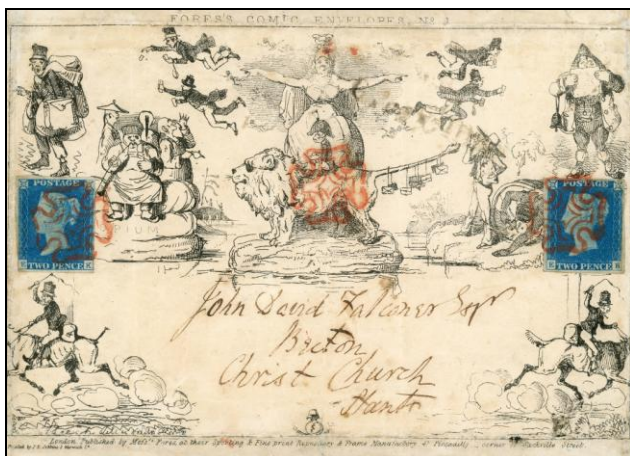 FORES'S COMIC ENVELOPES, No 1
POSTAGE
TWO PENCE
OPIUM
POSTAGE
TWO PENCE
John David Falconer Esqr
Christ Church
Hants
London. Published by Messrs Fores at their Sporting & Fine print Repository & Frame Manufactory 41 Piccadilly, corner of Sackville Street.